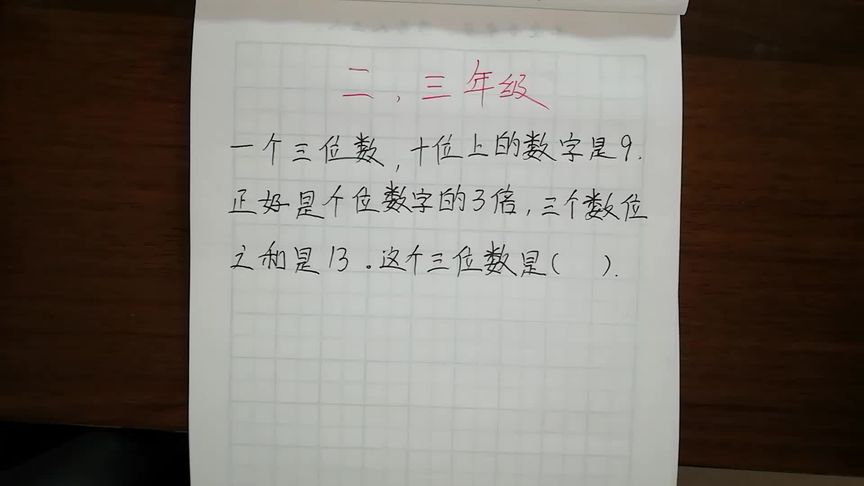 二，三年级
一个三位数，十位上的数字是9.
正好是个位数字的3倍，三个数位
之和是13。这个三位数是(  ).